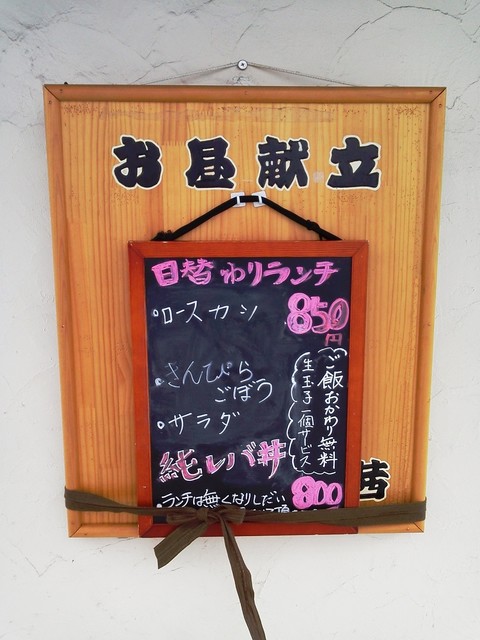 お昼献立
日替わりランチ
850
円
・ロースカツ
・きんぴら
ごぼう
・サラダ
ご飯おかわり無料
生玉子一個サービス
純レバ丼
800
・ランチは無くなりしだい